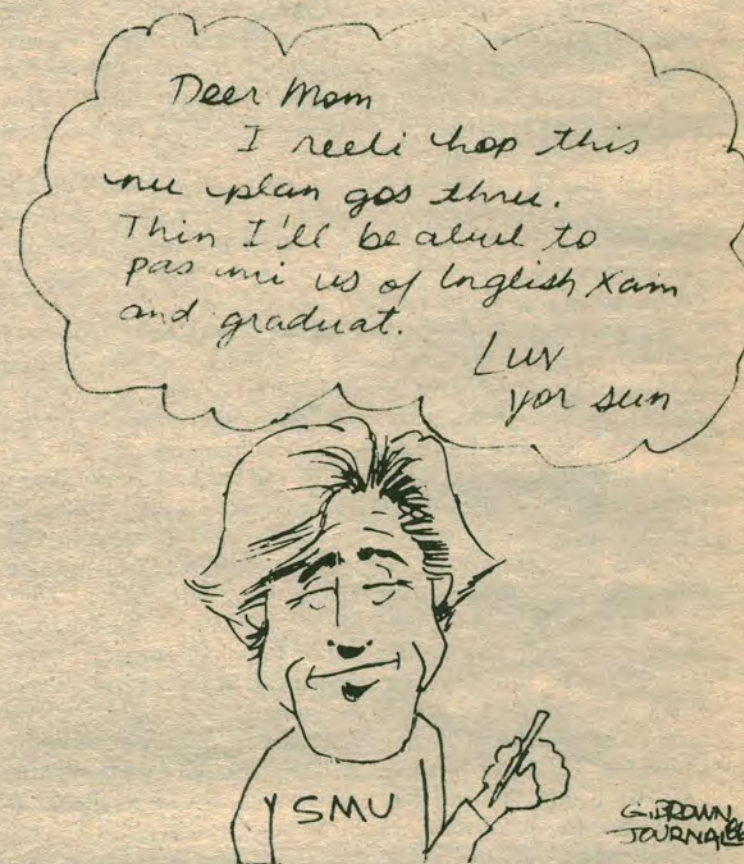 Deer Mom
I reeli hop this
nu plan gos thru.
Thin I'll be abul to
pas mi us of Inglish Xam
and graduat.
Luv
yor sun
SMU
G. BROWN
JOURNAL 86